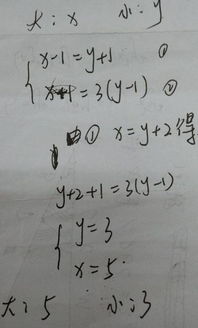 大:x 小:y
x-1=y+1 ①
x+1=3(y-1) ②
由① x=y+2得
y+2+1=3(y-1)
y=3
x=5
大:5 小:3